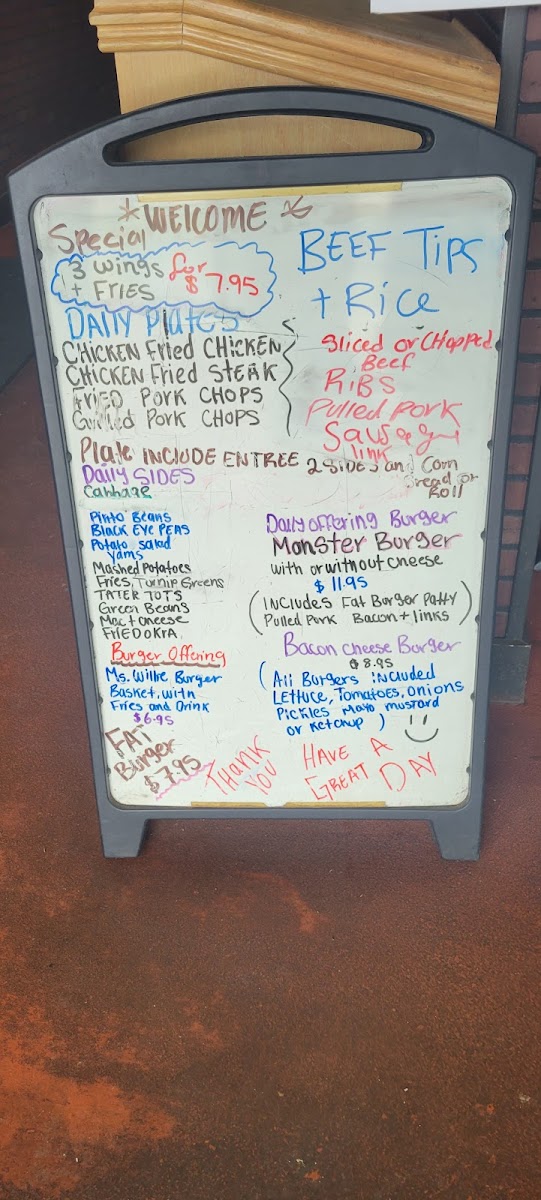 *WELCOME
Special
3 wings for
+ FRIES $7.95
BEEF TIPS
+ RICE
DAILY PlatES
CHICKEN Fried CHICKEN
CHICKEN Fried STEAK
FRIED PORK CHOPS
Grilled PORK CHOPS
Sliced or CHopped
Beef
RiBS
Pulled Pork
Sausage
link
Plate INCLUDE ENTREE 2 SIDES and Corn
Bread or
Roll
Daily SIDES
Cabbage
Pinto Beans
BLACK EYE PEAS
Potato salad
Yams
Mashed Potatoes
Fries, Turnip Greens
TATER TOTS
Green Beans
Mac + cheese
FRIED OKRA
Daily offering Burger
Monster Burger
with or without cheese
$11.95
(INCLUDES Fat Burger Patty
Pulled Pork Bacon + links)
Bacon cheese Burger
$8.95
(All Burgers included
Lettuce, Tomatoes, Onions
Pickles Mayo mustard
or Ketchup)
Burger Offering
Ms. Willie Burger
Basket, with
Fries and Drink
$6.95
FAT
Burger
$7.95
THANK
YOU
HAVE A
GREAT DAY